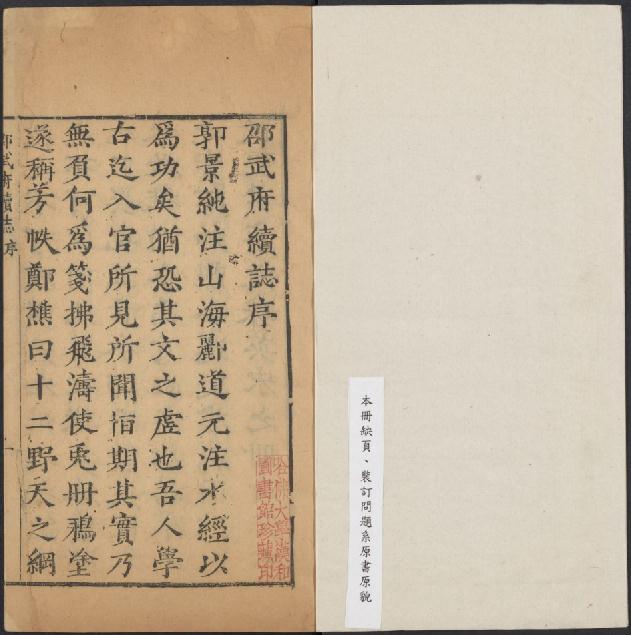 本冊缺頁、裝訂問題系原書原貌
邵武府續誌序
郭景純注山海酈道元注水經以
爲功矣猶恐其文之虛也吾人學
古迄入官所見所聞怕期其實乃
無負何爲箋拂飛濤使兎册鴉塗
遂稱芳帙鄭樵曰十二野天之綱
邵武府續誌 序
哈佛大學漢和
圖書館珍藏印